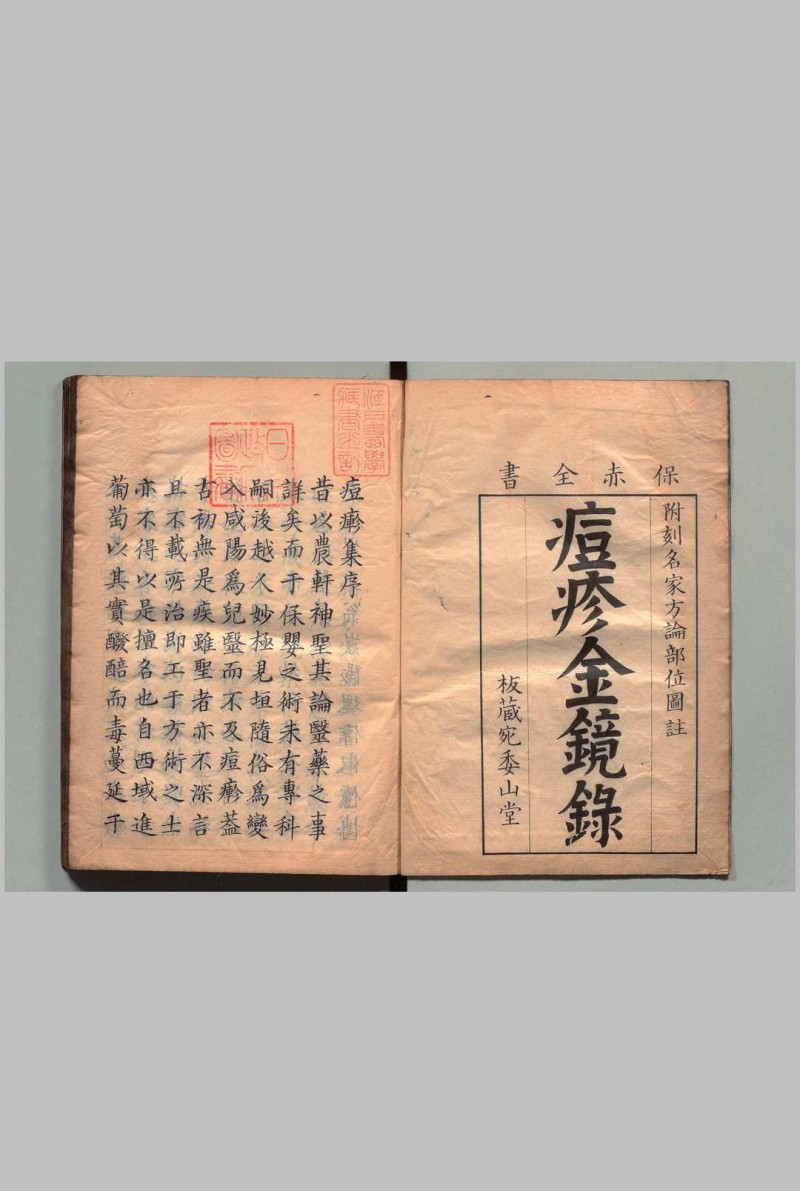 保赤全書
附刻名家方論部位圖註
痘疹金鏡錄
板藏宛委山堂
江戶醫學
藏書之記
日本
政府
圖書
痘瘮集序
昔以農軒神聖其論醫藥之事
詳矣而于保嬰之術未有專科
嗣後越人妙極見垣隨俗爲變
入咸陽爲兒醫而不及痘瘮葢
古初無是疾雖聖者亦不深言
且不載所治即工于方術之士
亦不得以是擅名也自西域進
葡萄以其實醱醅而毒蔓延于